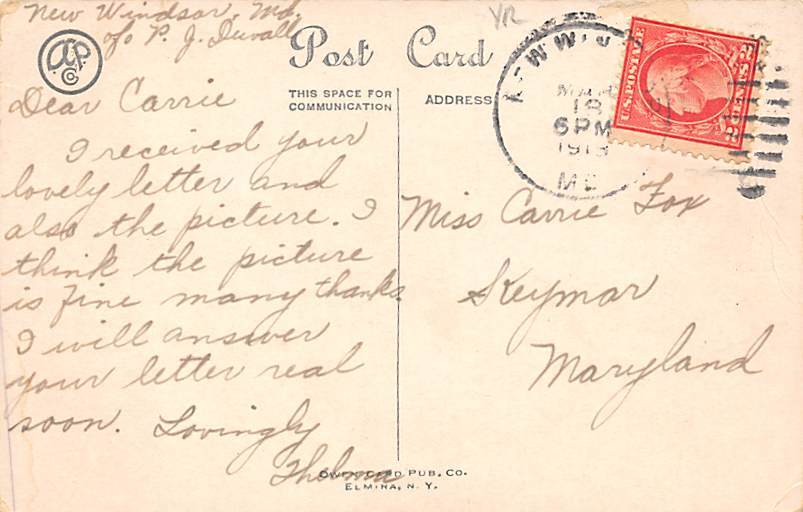 New Windsor, Md.
c/o P. J. Duvall
YR
Post Card
THIS SPACE FOR
COMMUNICATION
ADDRESS
Dear Carrie
I received your
lovely letter and
also the picture. I
think the picture
is fine many thanks.
I will answer
your letter real
soon. Lovingly
Thelma
Miss Carrie Fox
Keymar
Maryland
NEW WINDSOR
MAR
18
6 PM
MD
U.S. POSTAGE
PUB. CO.
ELMIRA, N. Y.